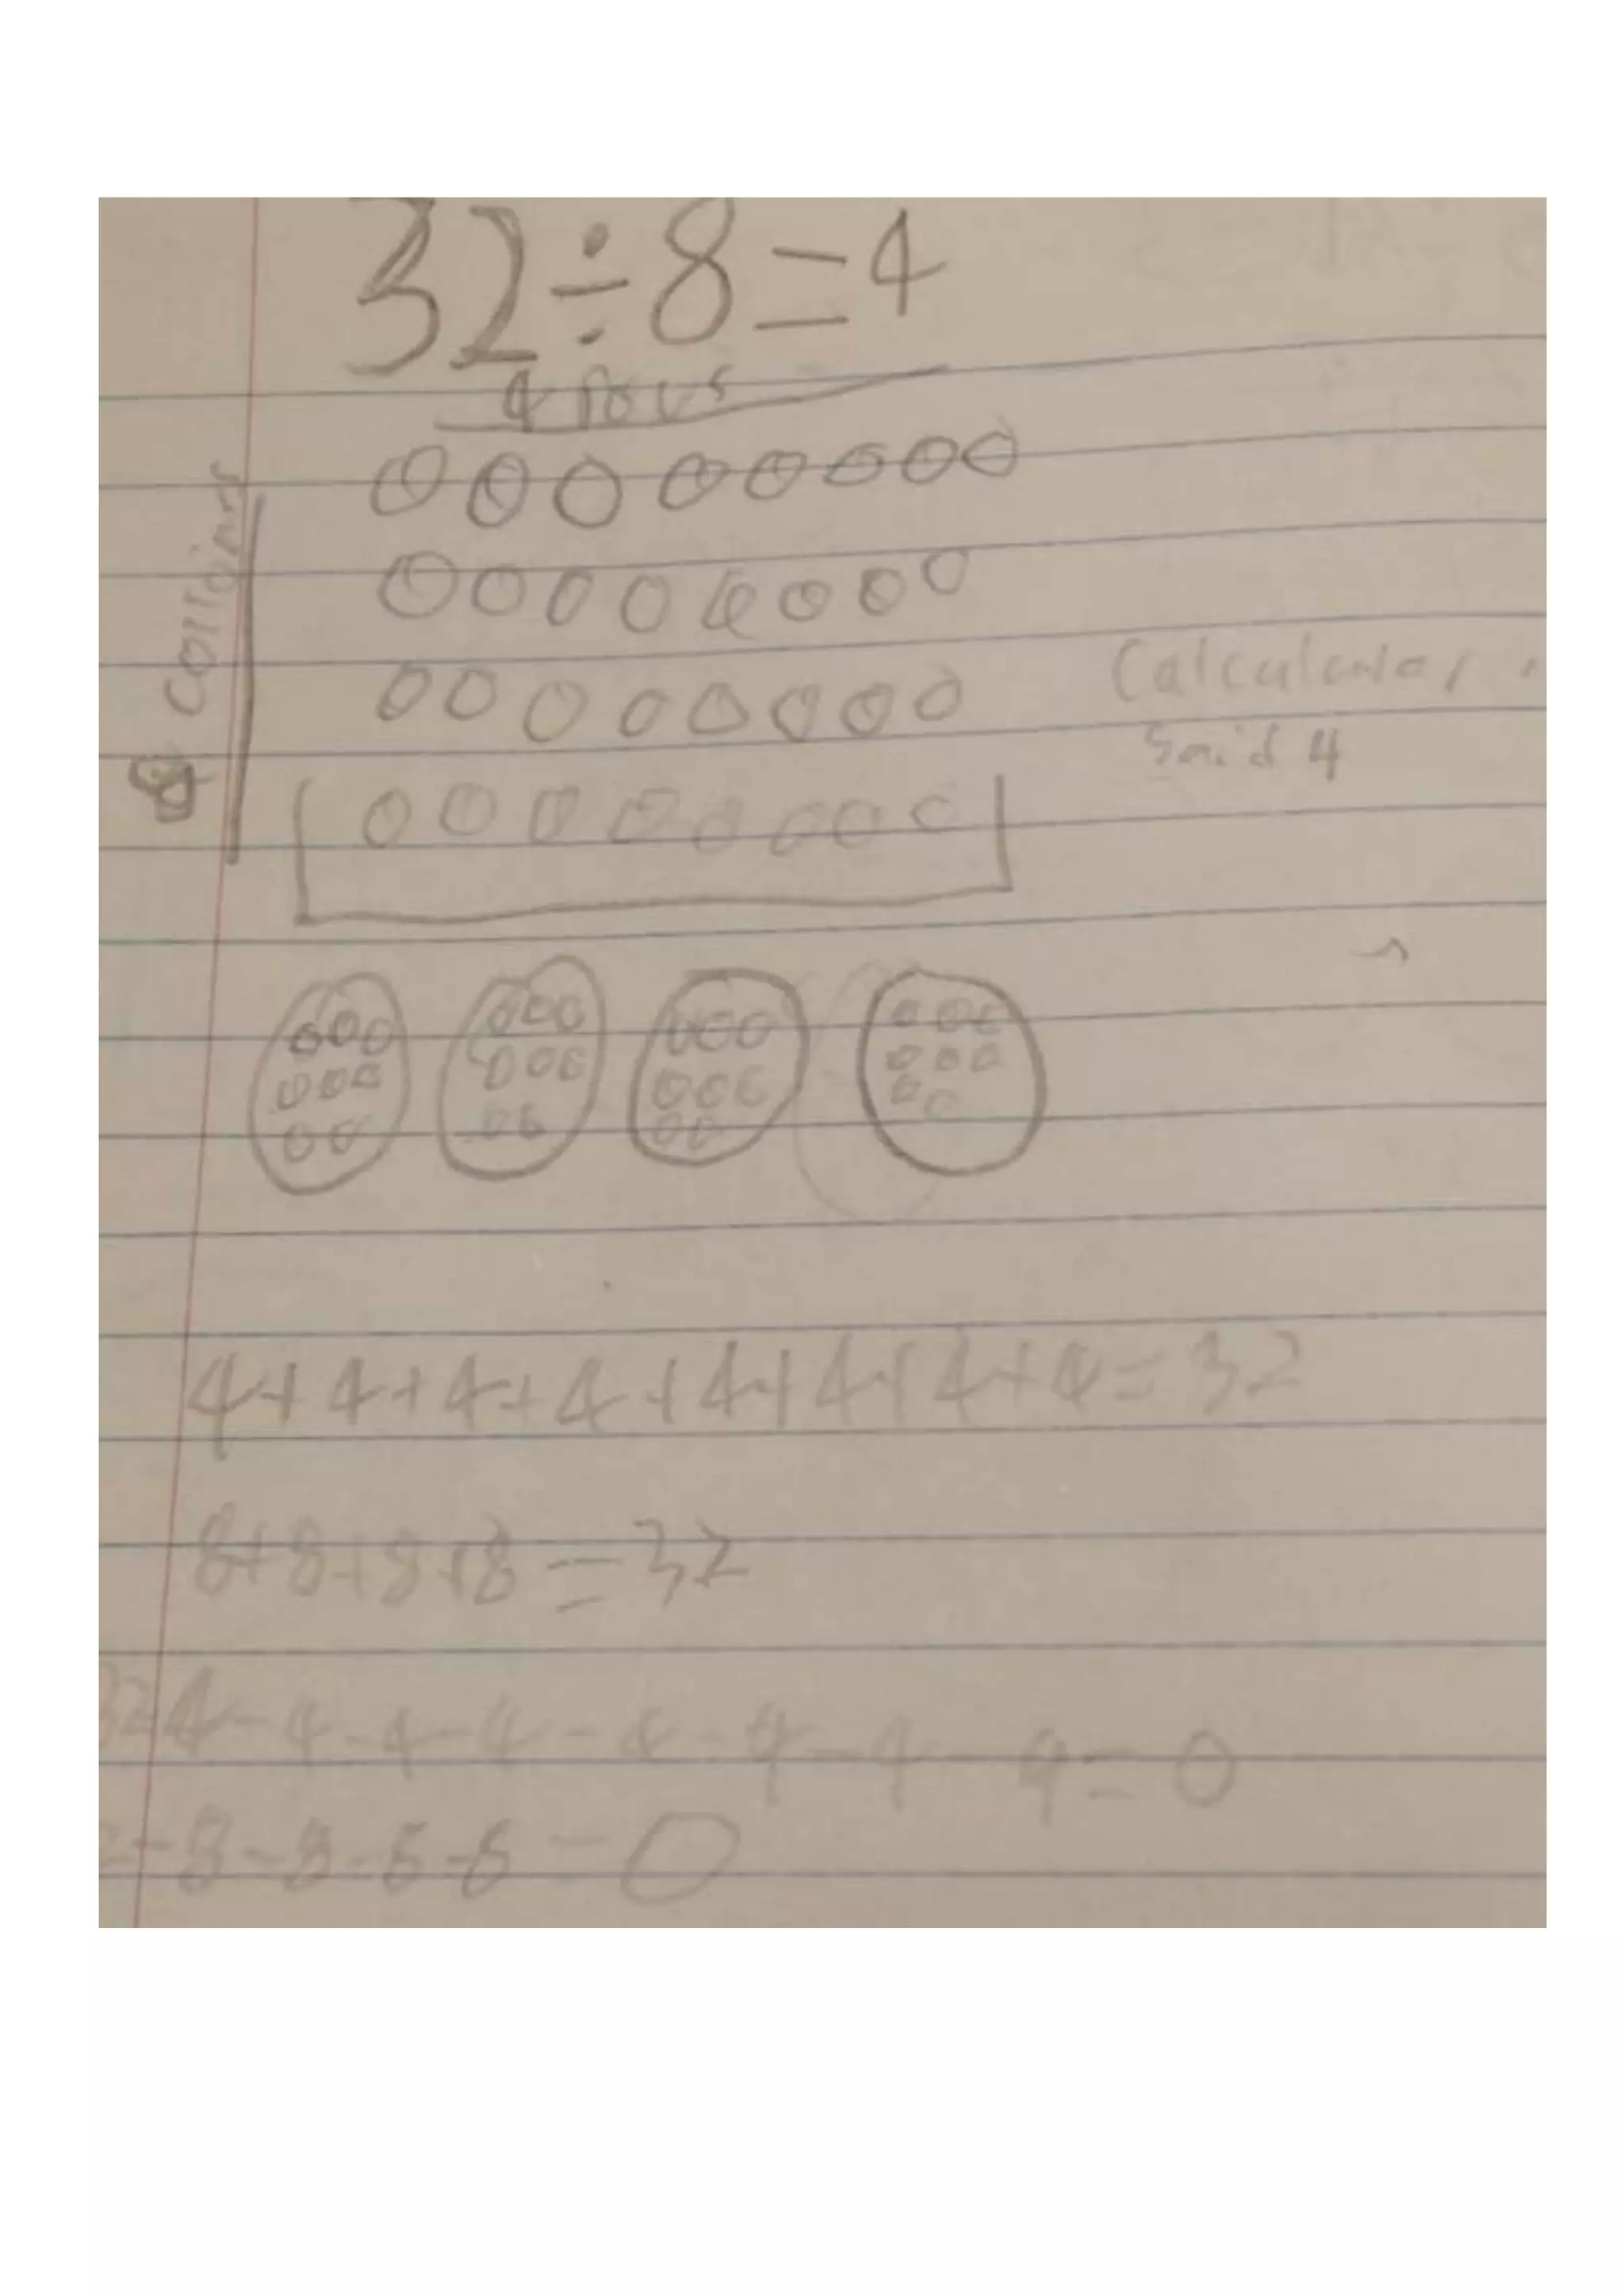 32÷8=4
4 rows
8 Colloms
Calculator
Said 4
4+4+4+4+4+4+4+4=32
8+8+8+8=32
32-4-4-4-4-4-4-4 4=0
-8-8-8-8=0